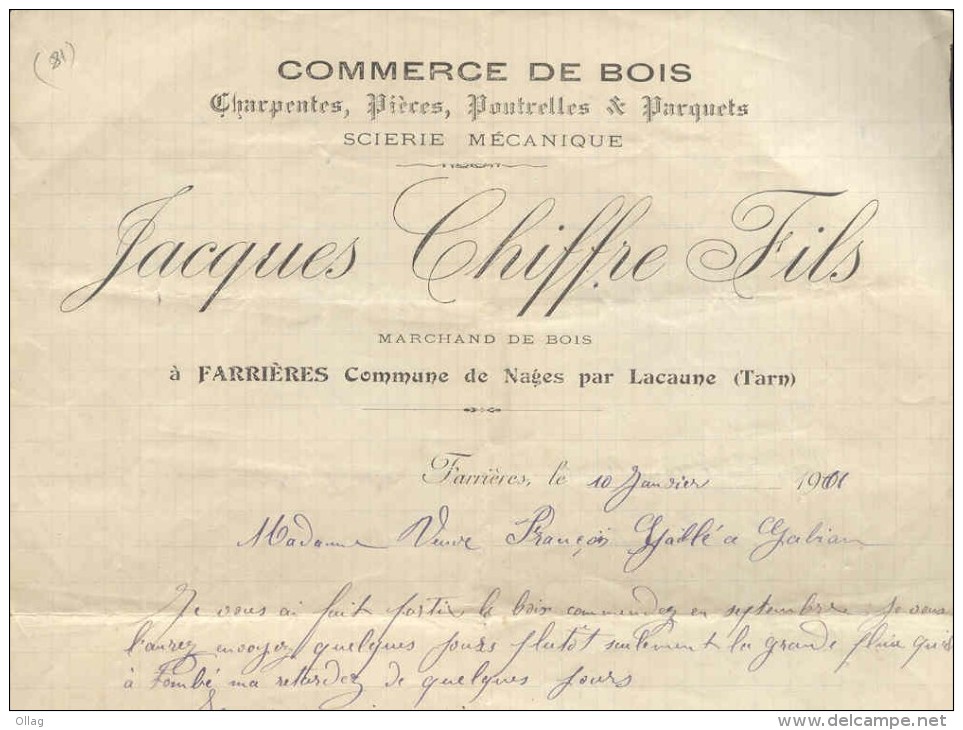 (81)
COMMERCE DE BOIS
Charpentes, Pièces, Poutrelles & Parquets
SCIERIE MÉCANIQUE
Jacques Chiffre Fils
MARCHAND DE BOIS
à FARRIÈRES Commune de Nages par Lacaune (Tarn)
Farrières, le 10 Janvier 19
Madame Veuve François à Gabian
Je vous ai fait partir le bois commendez en septembre. Je vous
l'aurez envoyez quelques jours plutôt seulement la grande pluie qu'il
à Tombé ma retardez de quelques jours
Ollag
www.delcampe.net